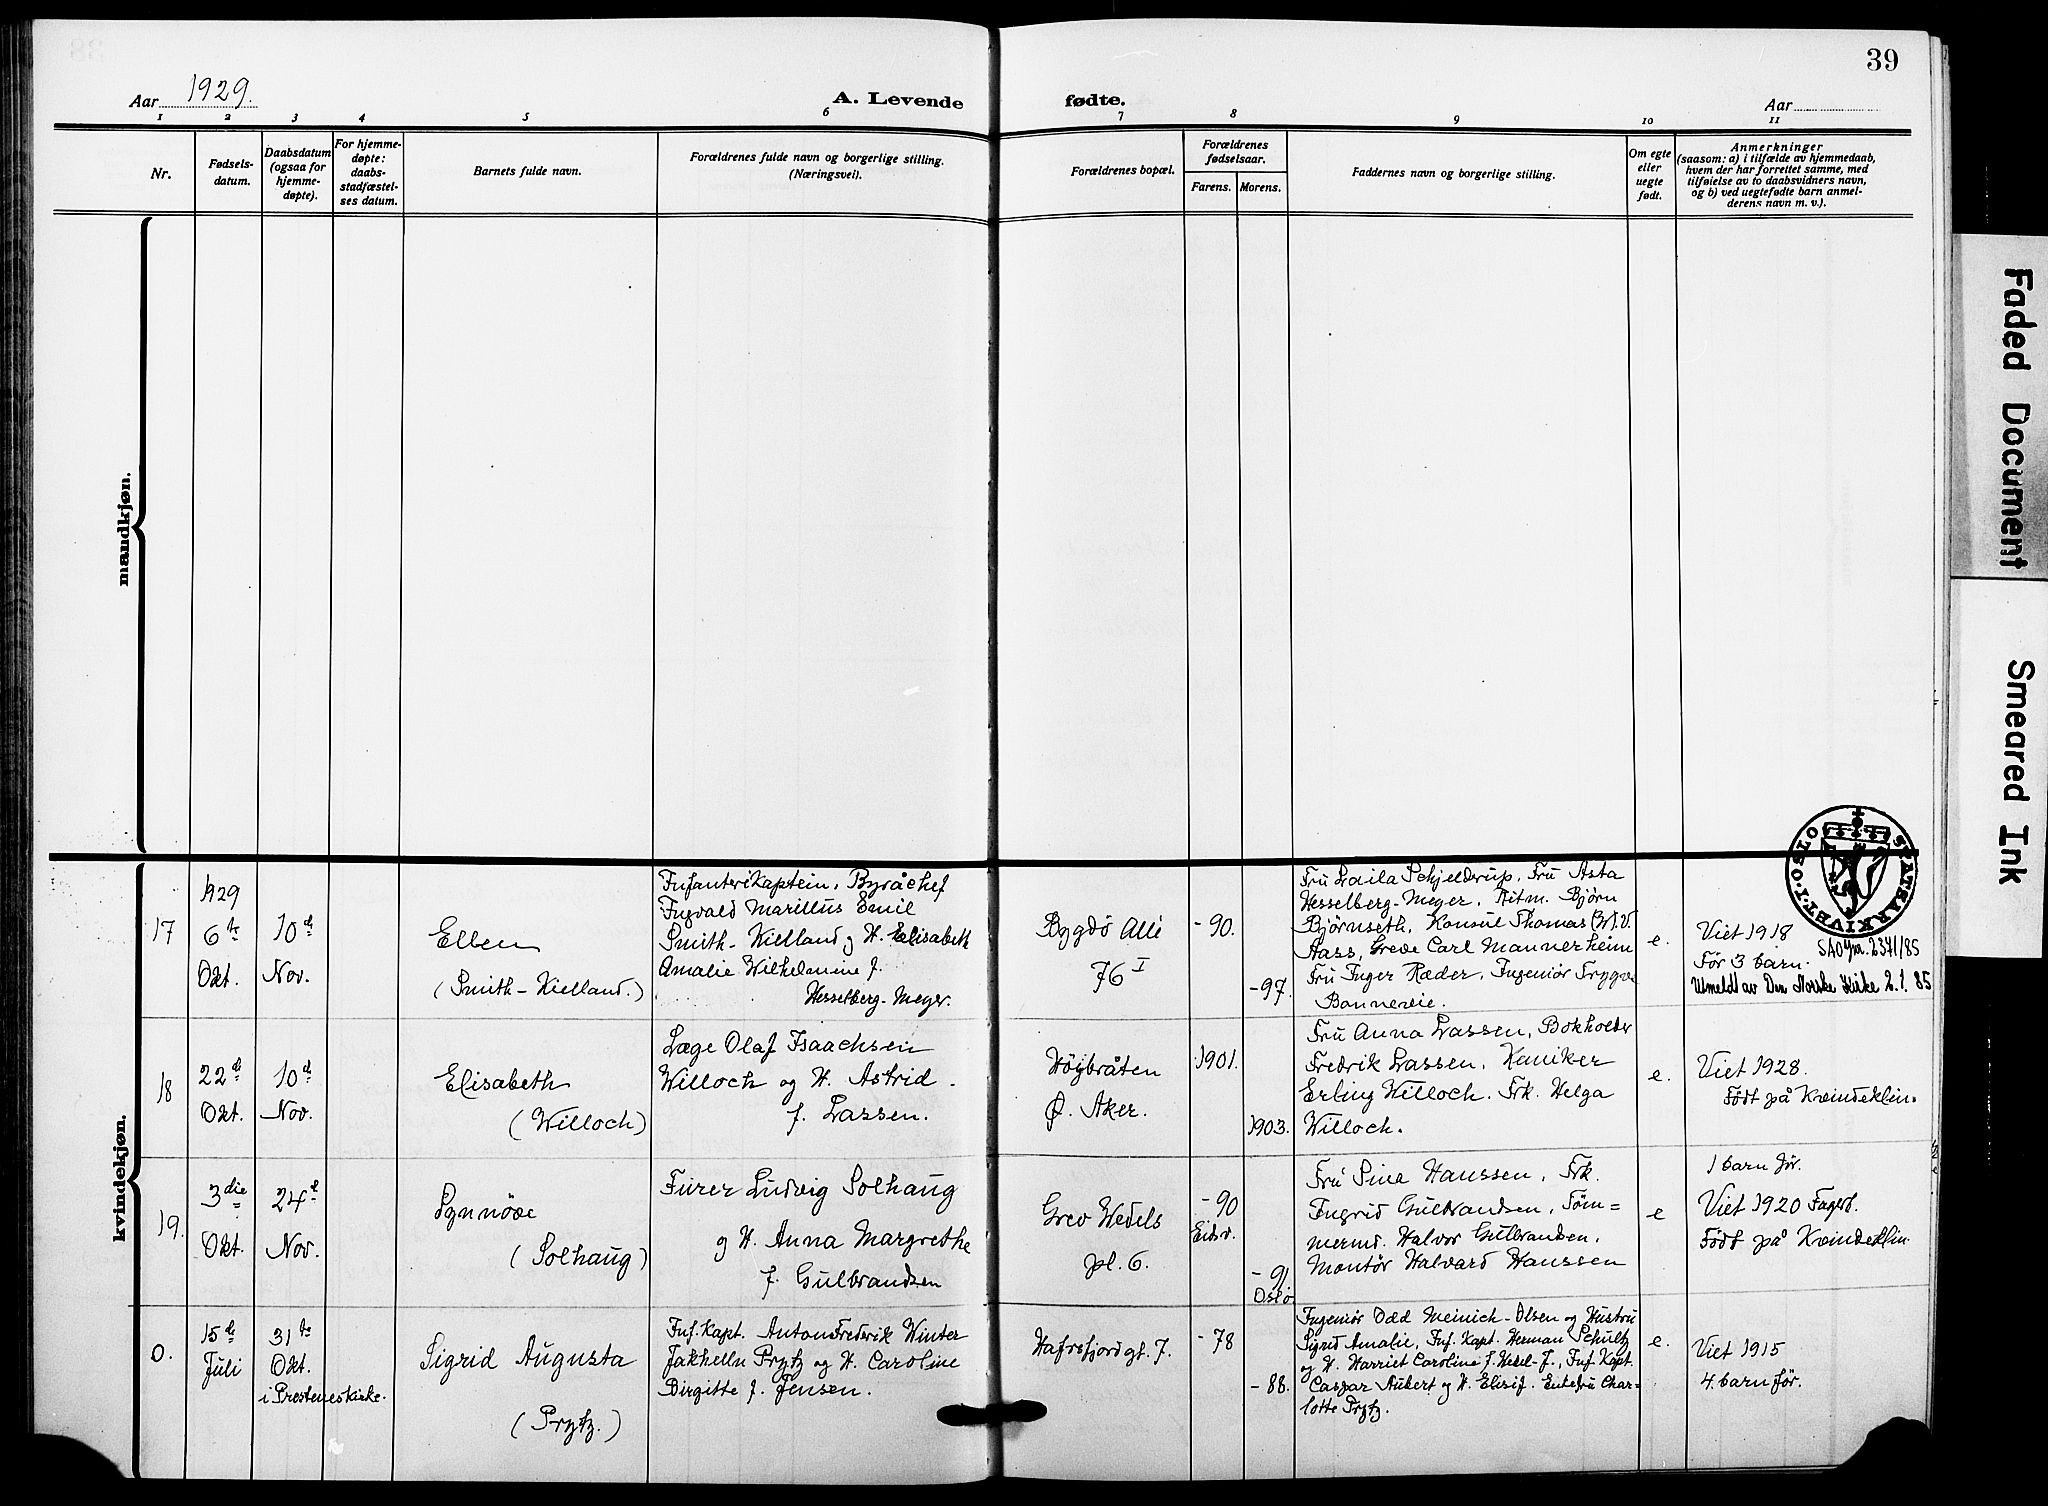 39
Aar 1929.
A. Levende
fødte.
Aar
1 2 3 4 5 6 7 8 9 10 11
Nr.
Fødsels-
datum.
Daabsdatum
(ogsaa for
hjemme-
døpte).
For hjemme-
døpte:
daabs-
stadfæstel-
ses datum.
Barnets fulde navn.
Forældrenes fulde navn og borgerlige stilling.
(Næringsvei).
Forældrenes bopæl.
Forældrenes
fødselsaar.
Farens. Morens.
Faddernes navn og borgerlige stilling.
Om egte
eller
uegte
født.
Anmerkninger
(saasom: a) i tilfælde av hjemmedaab,
hvem der har forrettet samme, med
tilføielse av to daabsvidners navn,
og b) ved uegtefødte barn anmel-
derens navn m. v.).
mandkjøn.
kvindekjøn.
17
1929
6te
Okt.
10de
Nov.
Ellen
(Smith-Kielland.)
Infanterikaptein, Byråchef
Ingvald Marillus Emil
Smith-Kielland og H. Elisabeth
Amalie Wilhelmine f.
Hesselberg-Meyer.
Bygdö Allé
76 I
-90.
-97.
Fru Laila Schjelderup, Fru Asta
Hesselberg-Meyer, Ritm. Björn
Björnseth, Konsul Thomas (W).V.
Aass, Greve Carl Mannerheim
Fru Inger Ræder, Ingeniør Trygve
Bonnevie.
e.
Viet 1918
För 3 barn.
SAO Jnr. 2341/85
Utmeldt av Den Norske Kirke 2.1.85
STATSARKIVET I OSLO
18
22de
Okt.
10de
Nov.
Elisabeth
(Willoch)
Læge Olaf Isaachsen
Willoch og H. Astrid
f. Lassen.
Höybråten
Ø. Aker.
1901.
1903.
Fru Anna Lassen, Bokholder
Fredrik Lassen, Kemiker
Erling Willoch. Frk. Helga
Willoch.
e.
Viet 1928.
Født på Kvindeklin.
19.
3die
Okt.
24de
Nov.
Synnöve
(Solhaug)
Furer Ludvig Solhaug
og H. Anna Margrethe
f. Gulbrandsen
Grev Wedels
pl. 6.
-90
Eidsv.
-91
Oslo
Fru Sina Hanssen, Frk.
Ingrid Gulbrandsen, Töm=
mermd. Halvor Gulbrandsen,
Montör Halvard Hanssen
e
1 barn för.
Viet 1920
Födt på Kvindeklin.
0.
15de
Juli
31te
Okt.
i Prestenes kirke.
Sigrid Augusta
(Prytz.)
Inf. Kapt. Anton Frederik Winter
Jakhelln Prytz og H. Caroline
Birgitte f. Jensen.
Hafrsfjordgt. 7.
-78
-88.
Ingeniør Odd Meinich-Olsen og Hustru
Sigrid Amalie, Inf. Kapt. Herman Schultz
og H. Harriet Caroline f. Wedel-J., Inf. Kapt.
Caspar Aubert og H. Elisif. Enkefru Char-
lotte Prytz.
e.
Viet 1915
4. barn för.
Faded Document
Smeared Ink